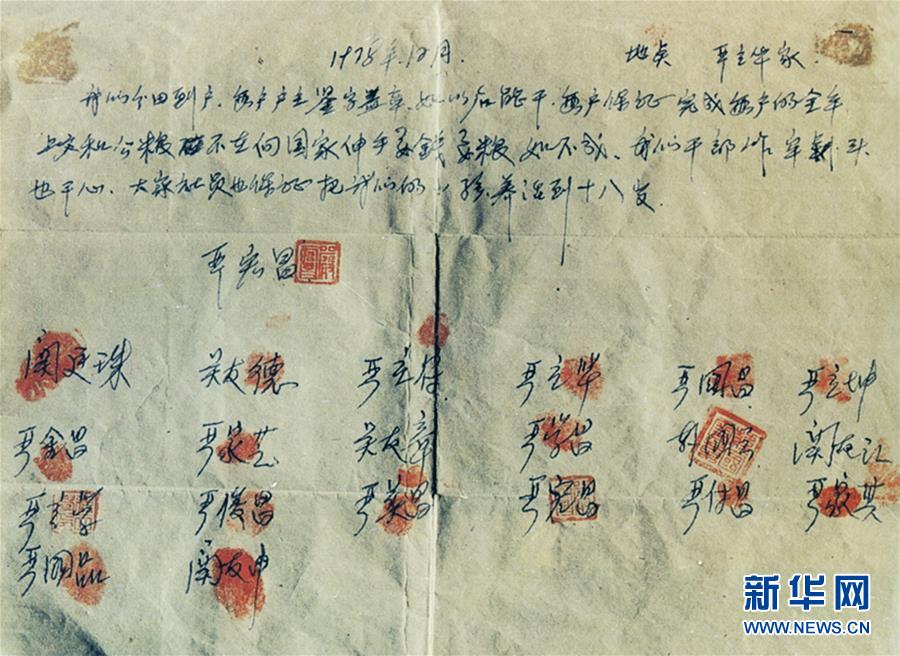 1978年12月. 地点 严立华家.
我们分田到户,每户户主签字盖章,如以后能干,每户保证完成每户的全年
上交和公粮,不在向国家伸手要钱要粮,如不成,我们干部作牢刹头
也干心,大家社员也保证把我们的小孩养活到十八岁.
严宏昌
关廷珠 关友德 严立符 严立华 严国昌 严立坤
严金昌 严家芝 关友章 严学昌 韩国云 关友江
严立学 严俊昌 严美昌 严宏昌 严付昌 严家其
严国品 关友申
新华网
WWW.NEWS.CN